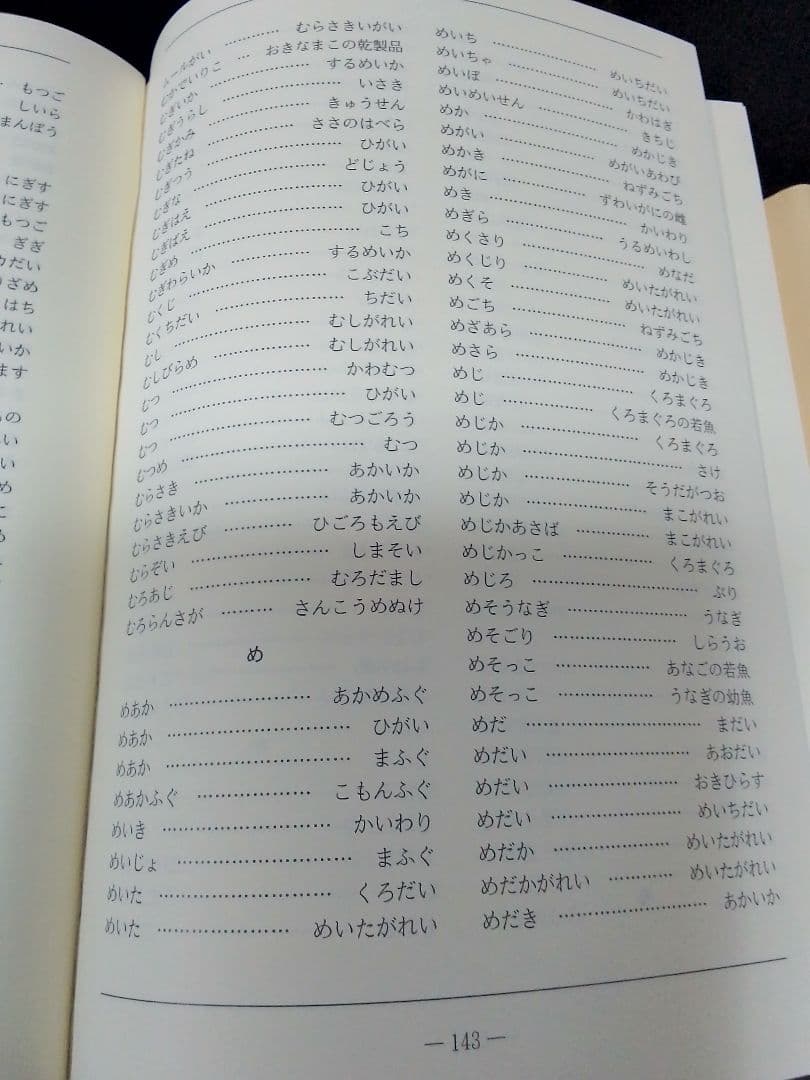 もつご
しいら
まんぼう
にぎす
にぎす
もつご
ぎぎ
ざめ
はち
れい
いか
ます
ールがい ………… むらさきいがい
むかでいりこ … おきなまこの乾製品
むぎいか ………… するめいか
むぎうらし ………… いさき
むぎかみ ………… きゅうせん
むぎたね ………… ささのはべら
むぎつう ………… ひがい
むぎな ………… どじょう
むぎはえ ………… ひがい
むぎばえ ………… ひがい
むぎめ ………… こち
むぎわらいか ………… するめいか
むくじ ………… こぶだい
むくちだい ………… ちだい
むし ………… むしがれい
むしびらめ ………… むしがれい
むつ ………… かわむつ
むつ ………… ひがい
むつ ………… むつごろう
むつめ ………… むつ
むらさき ………… あかいか
むらさきいか ………… あかいか
むらさきえび ………… ひごろもえび
むらぞい ………… しまそい
むろあじ ………… むろだまし
むろらんさが ……… さんこうめぬけ
め
めあか ………… あかめふぐ
めあか ………… ひがい
めあか ………… まふぐ
めあかふぐ ………… こもんふぐ
めいき ………… かいわり
めいじょ ………… まふぐ
めいた ………… くろだい
めいた ………… めいたがれい
めいち ………… めいちだい
めいちゃ ………… めいちだい
めいぼ ………… かわはぎ
めいめいせん ………… きちじ
めか ………… めかじき
めがい ………… めがいあわび
めかき ………… ねずみごち
めがに ………… ずわいがにの雌
めき ………… かいわり
めぎら ………… うるめいわし
めくさり ………… めなだ
めくじり ………… めいたがれい
めくそ ………… めいたがれい
めごち ………… ねずみごち
めざあら ………… めかじき
めさら ………… めかじき
めじ ………… くろまぐろ
めじ ………… くろまぐろの若魚
めじか ………… くろまぐろ
めじか ………… さけ
めじか ………… そうだがつお
めじか ………… まこがれい
めじかあさば ………… まこがれい
めじかっこ ………… くろまぐろ
めじろ ………… ぶり
めそうなぎ ………… うなぎ
めそごり ………… しらうお
めそっこ ………… あなごの若魚
めそっこ ………… うなぎの幼魚
めだ ………… まだい
めだい ………… あおだい
めだい ………… おきひらす
めだい ………… めいちだい
めだか ………… めいたがれい
めだかがれい ………… めいたがれい
めだき ………… あかいか
— 143 —